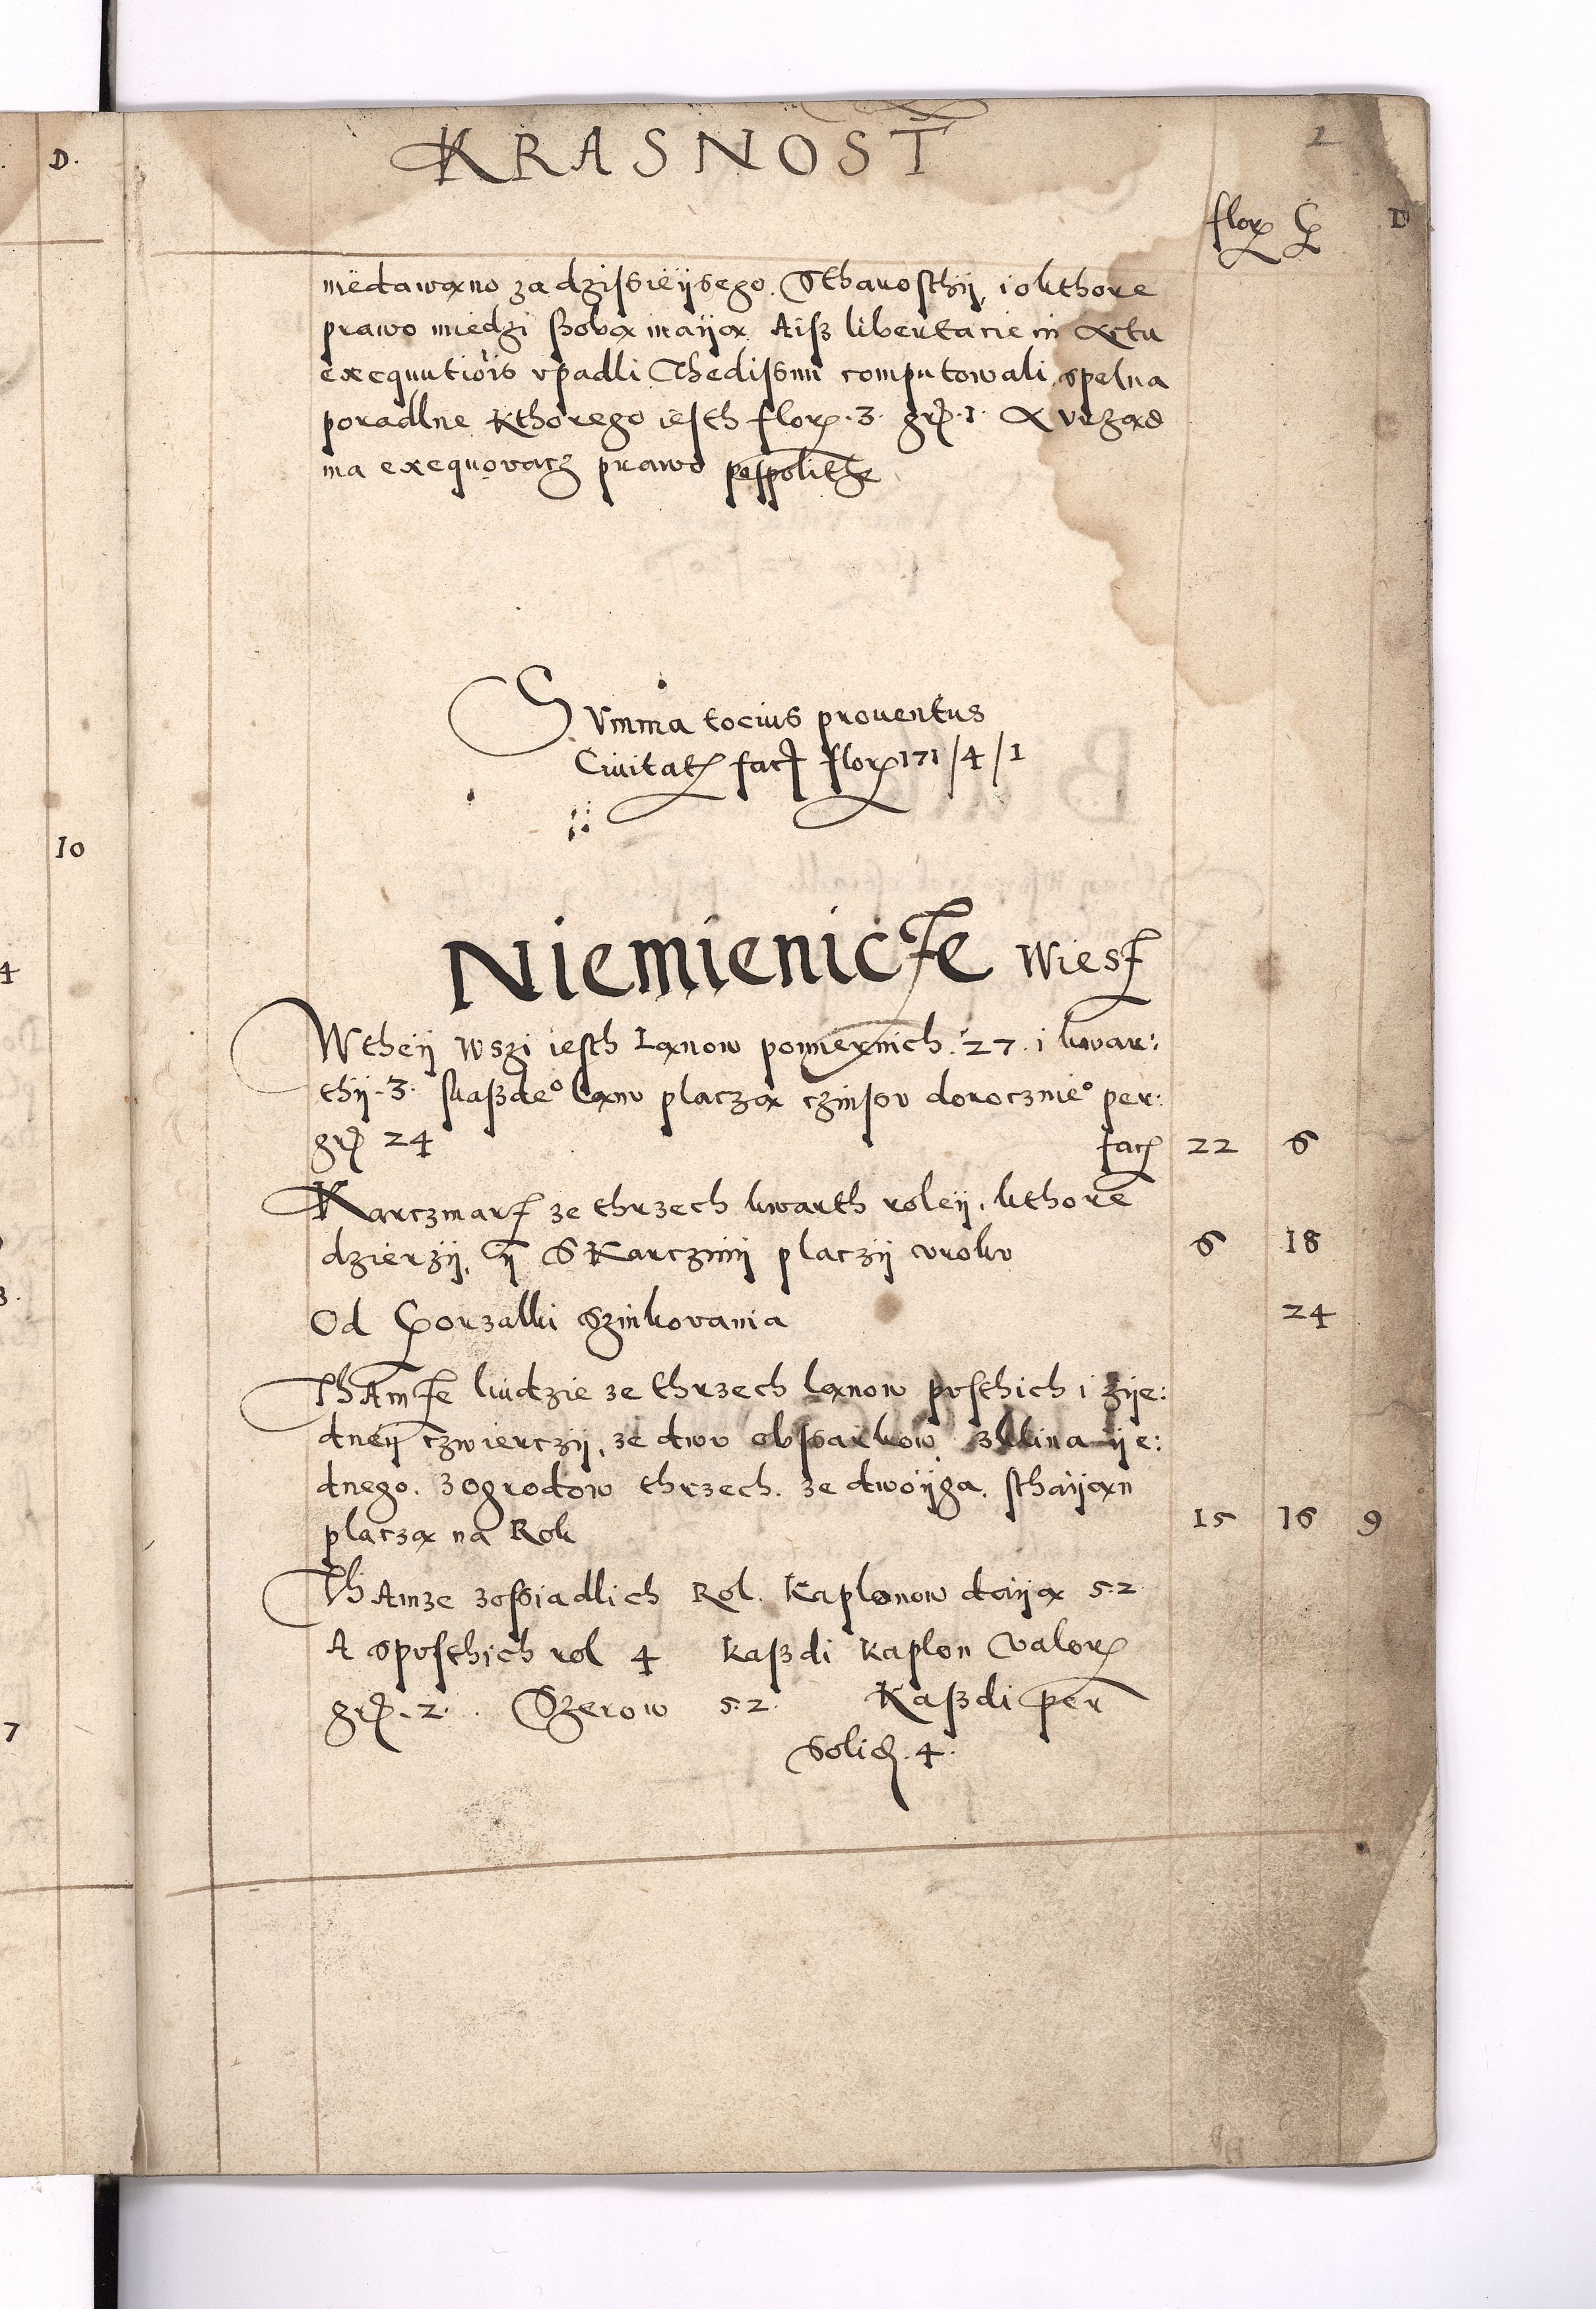 D.
KRASNOST
2
flor. G D
niedawąno za dzissieijsego Stharosthÿ, i o kthore
prawo miedzi ssobą maiją Aisz libertacie in Actu
exequutiois vpadli Thedissmi computowali spelna
poradlne kthorego iesth flor. 3. gr. 1. A vrząd
ma exequovacz prawo pospolithe
Summa tocius prouentus
Ciuitat facit flor 171/4/1
10
4
Niemienicze Wies
W theÿ wszi iesth Lanow pomiernich. 27. i kwar:
thÿ. 3. skaszde° lanv placzą czinsov dorocznie° per:
gr. 24 fac 22 6
Karczmarz ze thrzech kwarth roleÿ, kthore
dzierzÿ, ÿ S Karczmÿ placzÿ vroku 6 18
Od Gorzalki Szinkovania 24
Thamze liudzie ze thrzech lanow pvsthich i zÿe:
dneÿ czwierczÿ, ze dwv obssarkow zklina ÿe:
dnego. z ogrodow thrzech. ze dwoÿga. sthaÿan
placzą na Rok 15 16 9
Thamze zossiadlich Rol. Kaplonow daÿą 52
A spvsthich rol 4 Kaszdi Kaplon Valor
gr. 2. Szerow 52. Kaszdi per
7
Solid. 4.